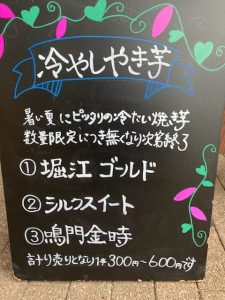 冷やしやき芋
暑い夏にピッタリの冷たい焼き芋
数量限定につき無くなり次第終了
①堀江ゴールド
②シルクスイート
③鳴門金時
計り売りとなり1本300円～600円です